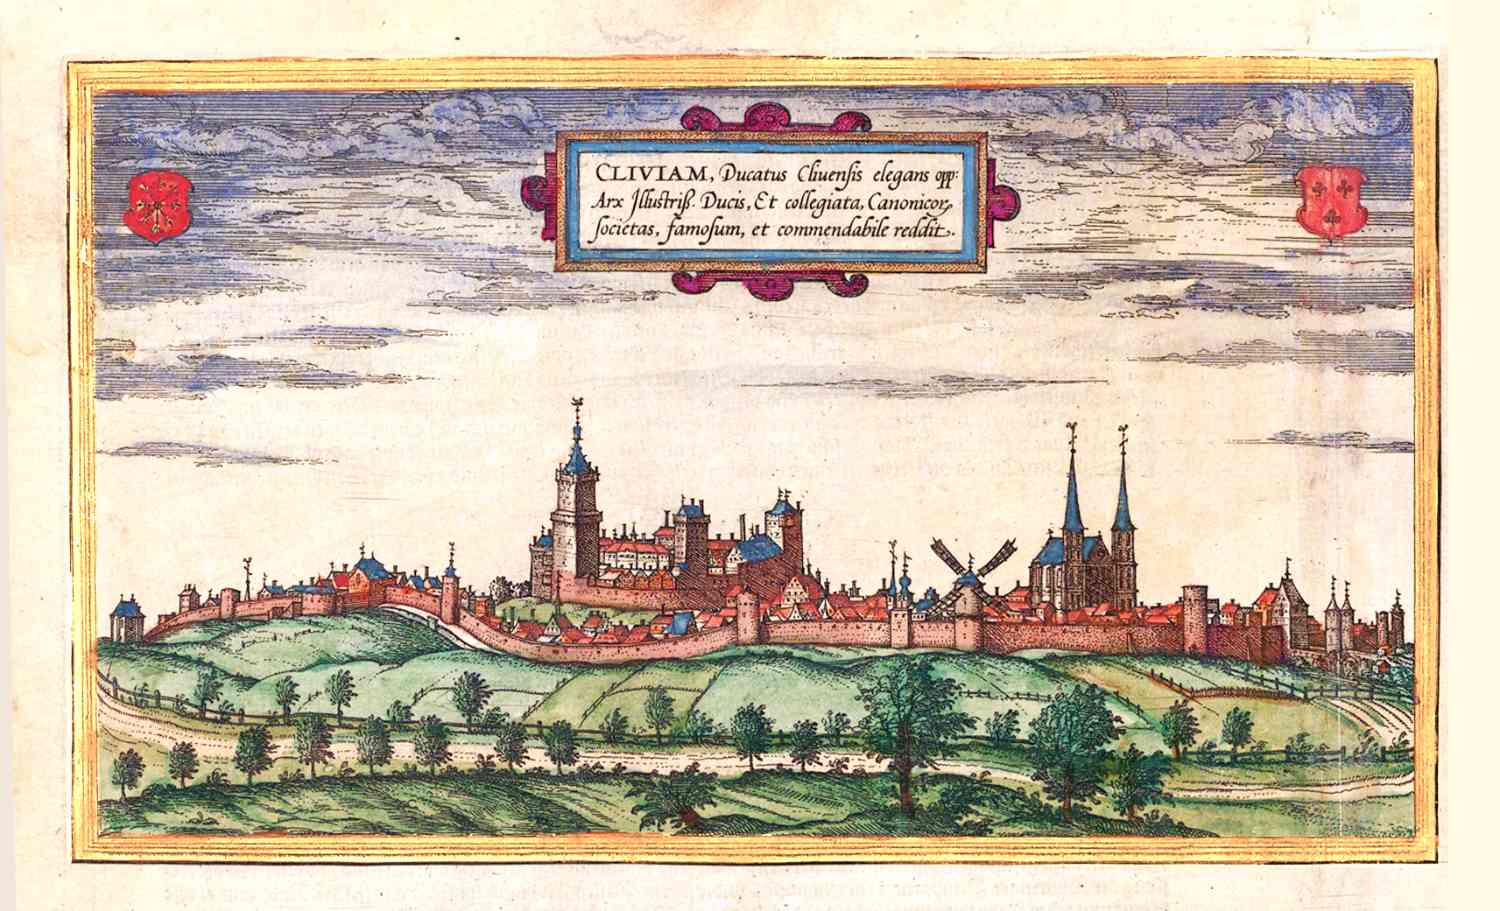 CLIVIAM, Ducatus Cliuensis elegans opp:
Arx Illustriss. Ducis, Et collegiata, Canonicor,
societas, famosum, et commendabile reddit.